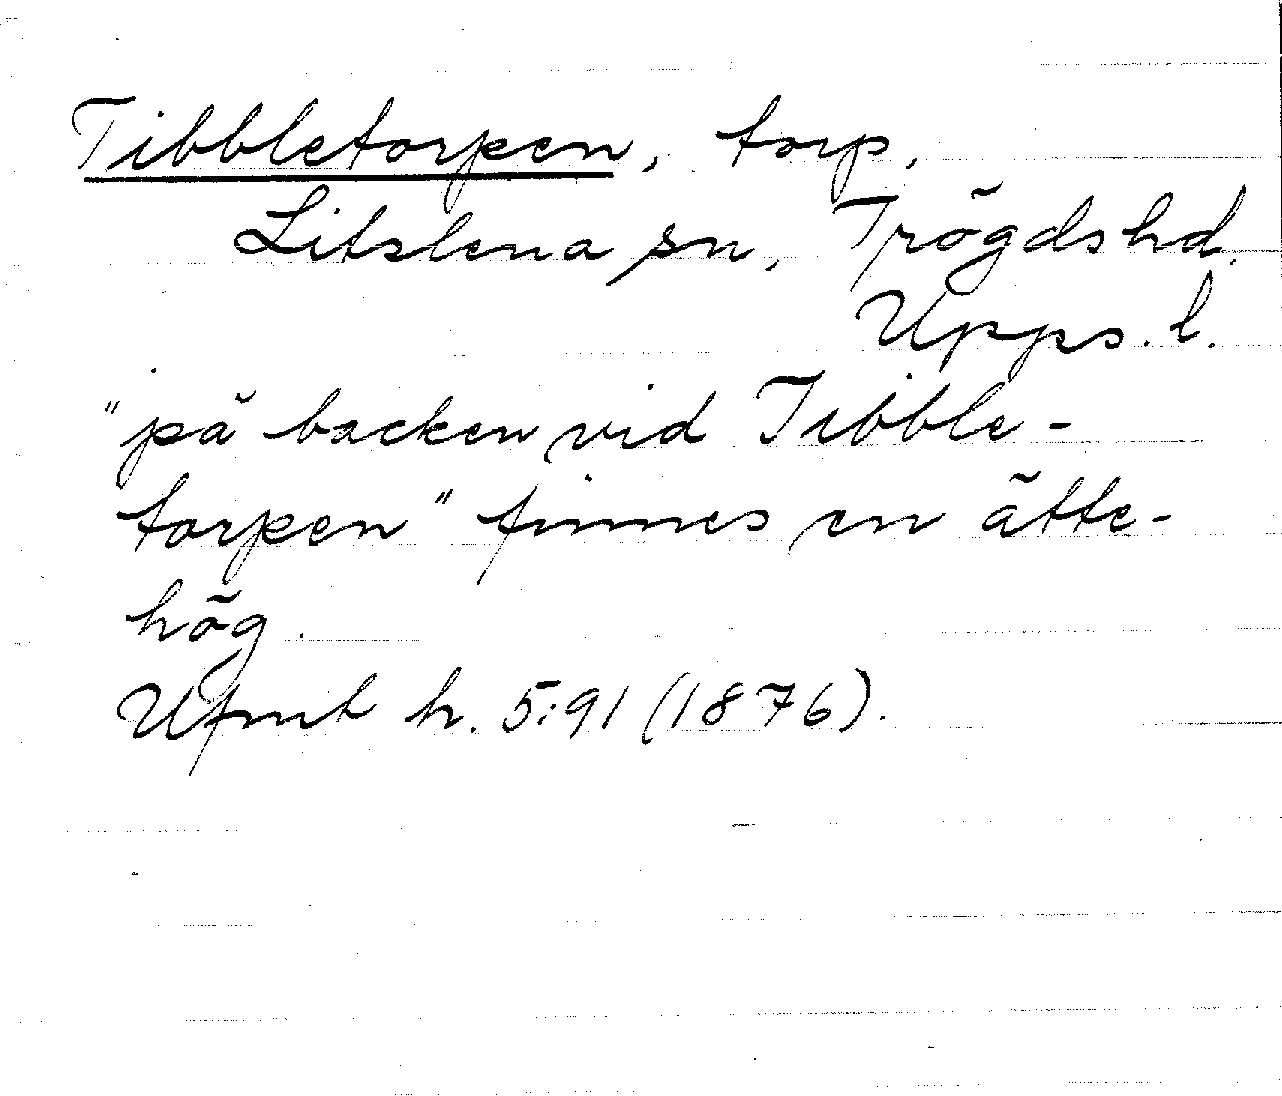 Tibbletorpen, torp,
Litslena sn, Trögds hd.
Upps. l.
"på backen vid Tibble-
torpen" finnes en ätte-
hög.
Ufmt h. 5:91 (1876).